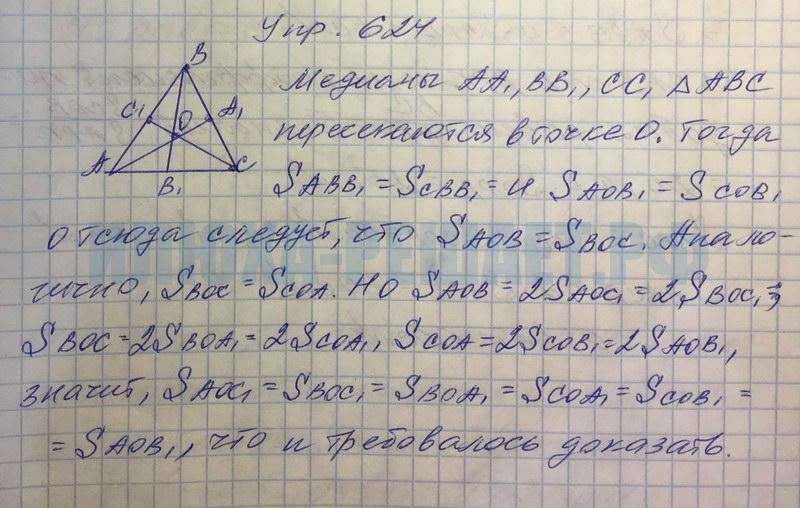 Упр. 624
B
C₁
A₁
O
A
C
B₁
Медианы AA₁, BB₁, CC₁ △ABC
пересекаются в точке O. Тогда
S ABB₁ = S CBB₁ = и S AOB₁ = S COB₁
отсюда следует, что S AOB = S BOC. Анало-
гично, S BOC = S COA. Но S AOB = 2S AOC₁ = 2S BOC₁ =;
S BOC = 2S BOA₁ = 2S COA₁, S COA = 2S COB₁ = 2S AOB₁,
значит, S AOC₁ = S BOC₁ = S BOA₁ = S COA₁ = S COB₁ =
= S AOB₁, что и требовалось доказать.